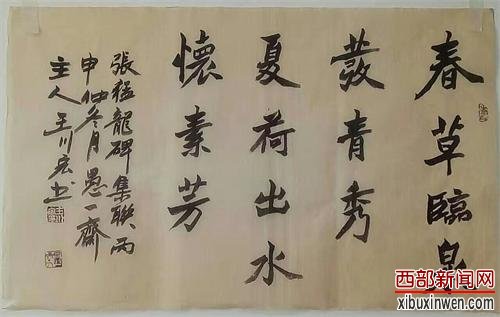 春草臨泉
發青秀
夏荷出水
懷素芳
張猛龍碑集联丙
申仲冬月愚一齋
主人王川宏书
西部新闻网
xibuxinwen.com